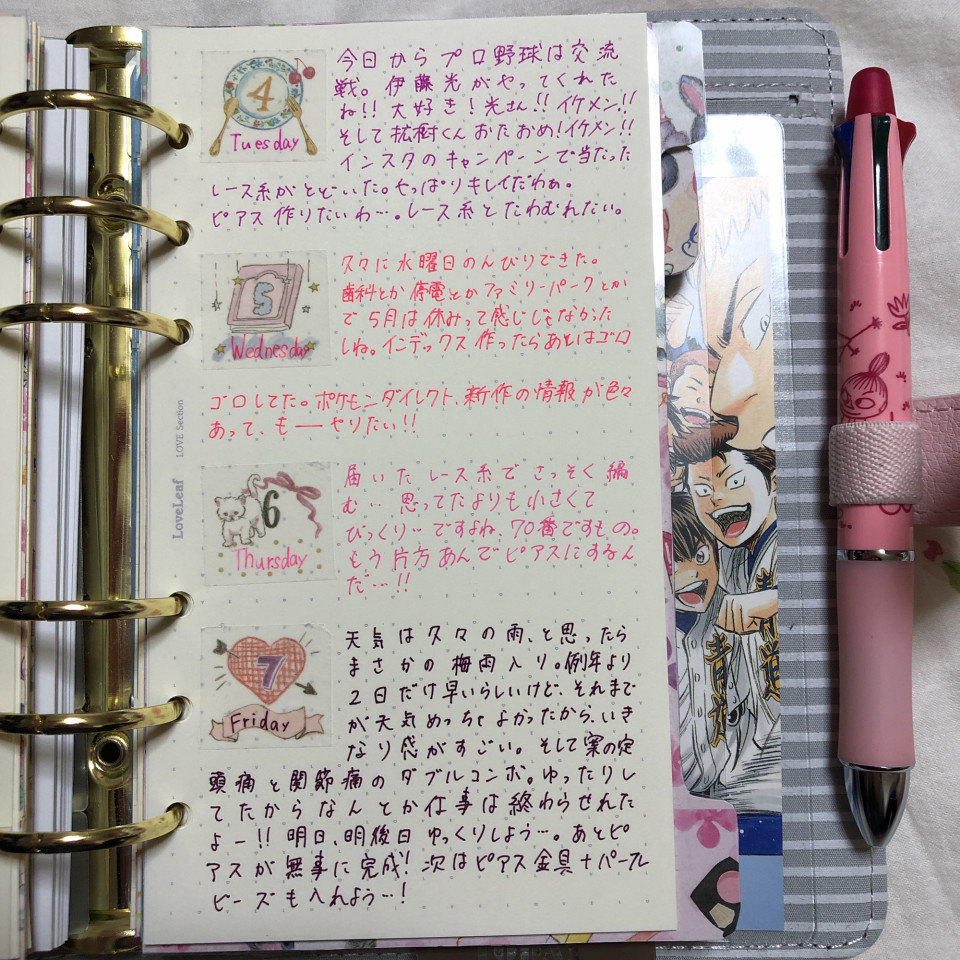 4
Tuesday
今日から プロ野球は交流
戦。伊藤光がやってくれた
ね!! 大好き!光さん!!イケメン!!
そして拡樹くんおたおめ!イケメン!!
インスタのキャンペーンで当たった
レース糸がとどいた。やっぱりキレイだわぁ。
ピアス作りたいわ…。レース糸とたわむれたい。
5
Wednesday
久々に水曜日のんびりできた。
歯科とか停電とかファミリーパークとか
で5月は休みって感じじゃなかった
しね。インデックス作ったらあとはゴロ
ゴロしてた。ポケモンダイレクト、新作の情報が色々
あって、もーーやりたい!!
6
Thursday
届いたレース糸でさっそく編
む… 思ってたよりも小さくて
びっくり…ですよね、70番ですもの。
もう片方あんでピアスにするん
だ…!!
7
Friday
天気は久々の雨、と思ったら
まさかの梅雨入り。例年より
2日だけ早いらしいけど、それまで
が天気めっちゃよかったから、いき
なり感がすごい。そして案の定
頭痛と関節痛のダブルコンボ。ゆったりし
てたからなんとか仕事は終わらせれた
よー!! 明日、明後日ゆっくりしよう…。あとピ
アスが無事に完成! 次はピアス金具+パール
ビーズも入れよう…!
LoveLeaf LOVE Section
青道
青道